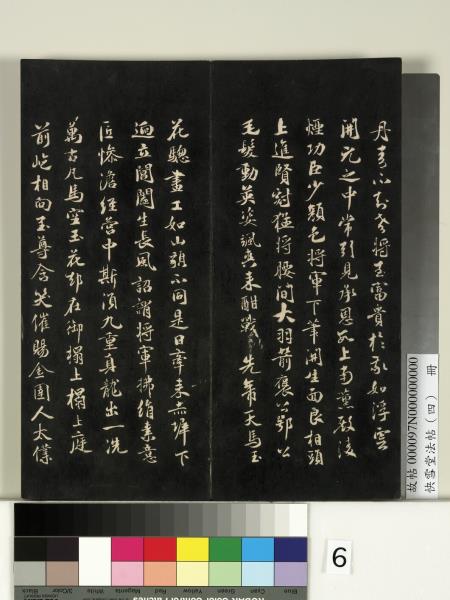 丹青不知老將至富貴於我如浮雲
開元之中常引見承恩數上南薰殿凌
煙功臣少顏色將軍下筆開生面良相頭
上進賢冠猛將腰間大羽箭褒公鄂公
毛髮動英姿颯爽來酣戰先帝天馬玉
花驄畫工如山貌不同是日牽來赤墀下
迥立閶闔生長風詔謂將軍拂絹素意
匠慘澹經營中斯須九重真龍出一洗
萬古凡馬空玉花却在御榻上榻上庭
前屹相向至尊含笑催賜金圉人太僕
故帖000097N000000000 冊
快雪堂法帖（四）
6
Blue Cyan Green Yellow Red Magenta White 3/Color Black